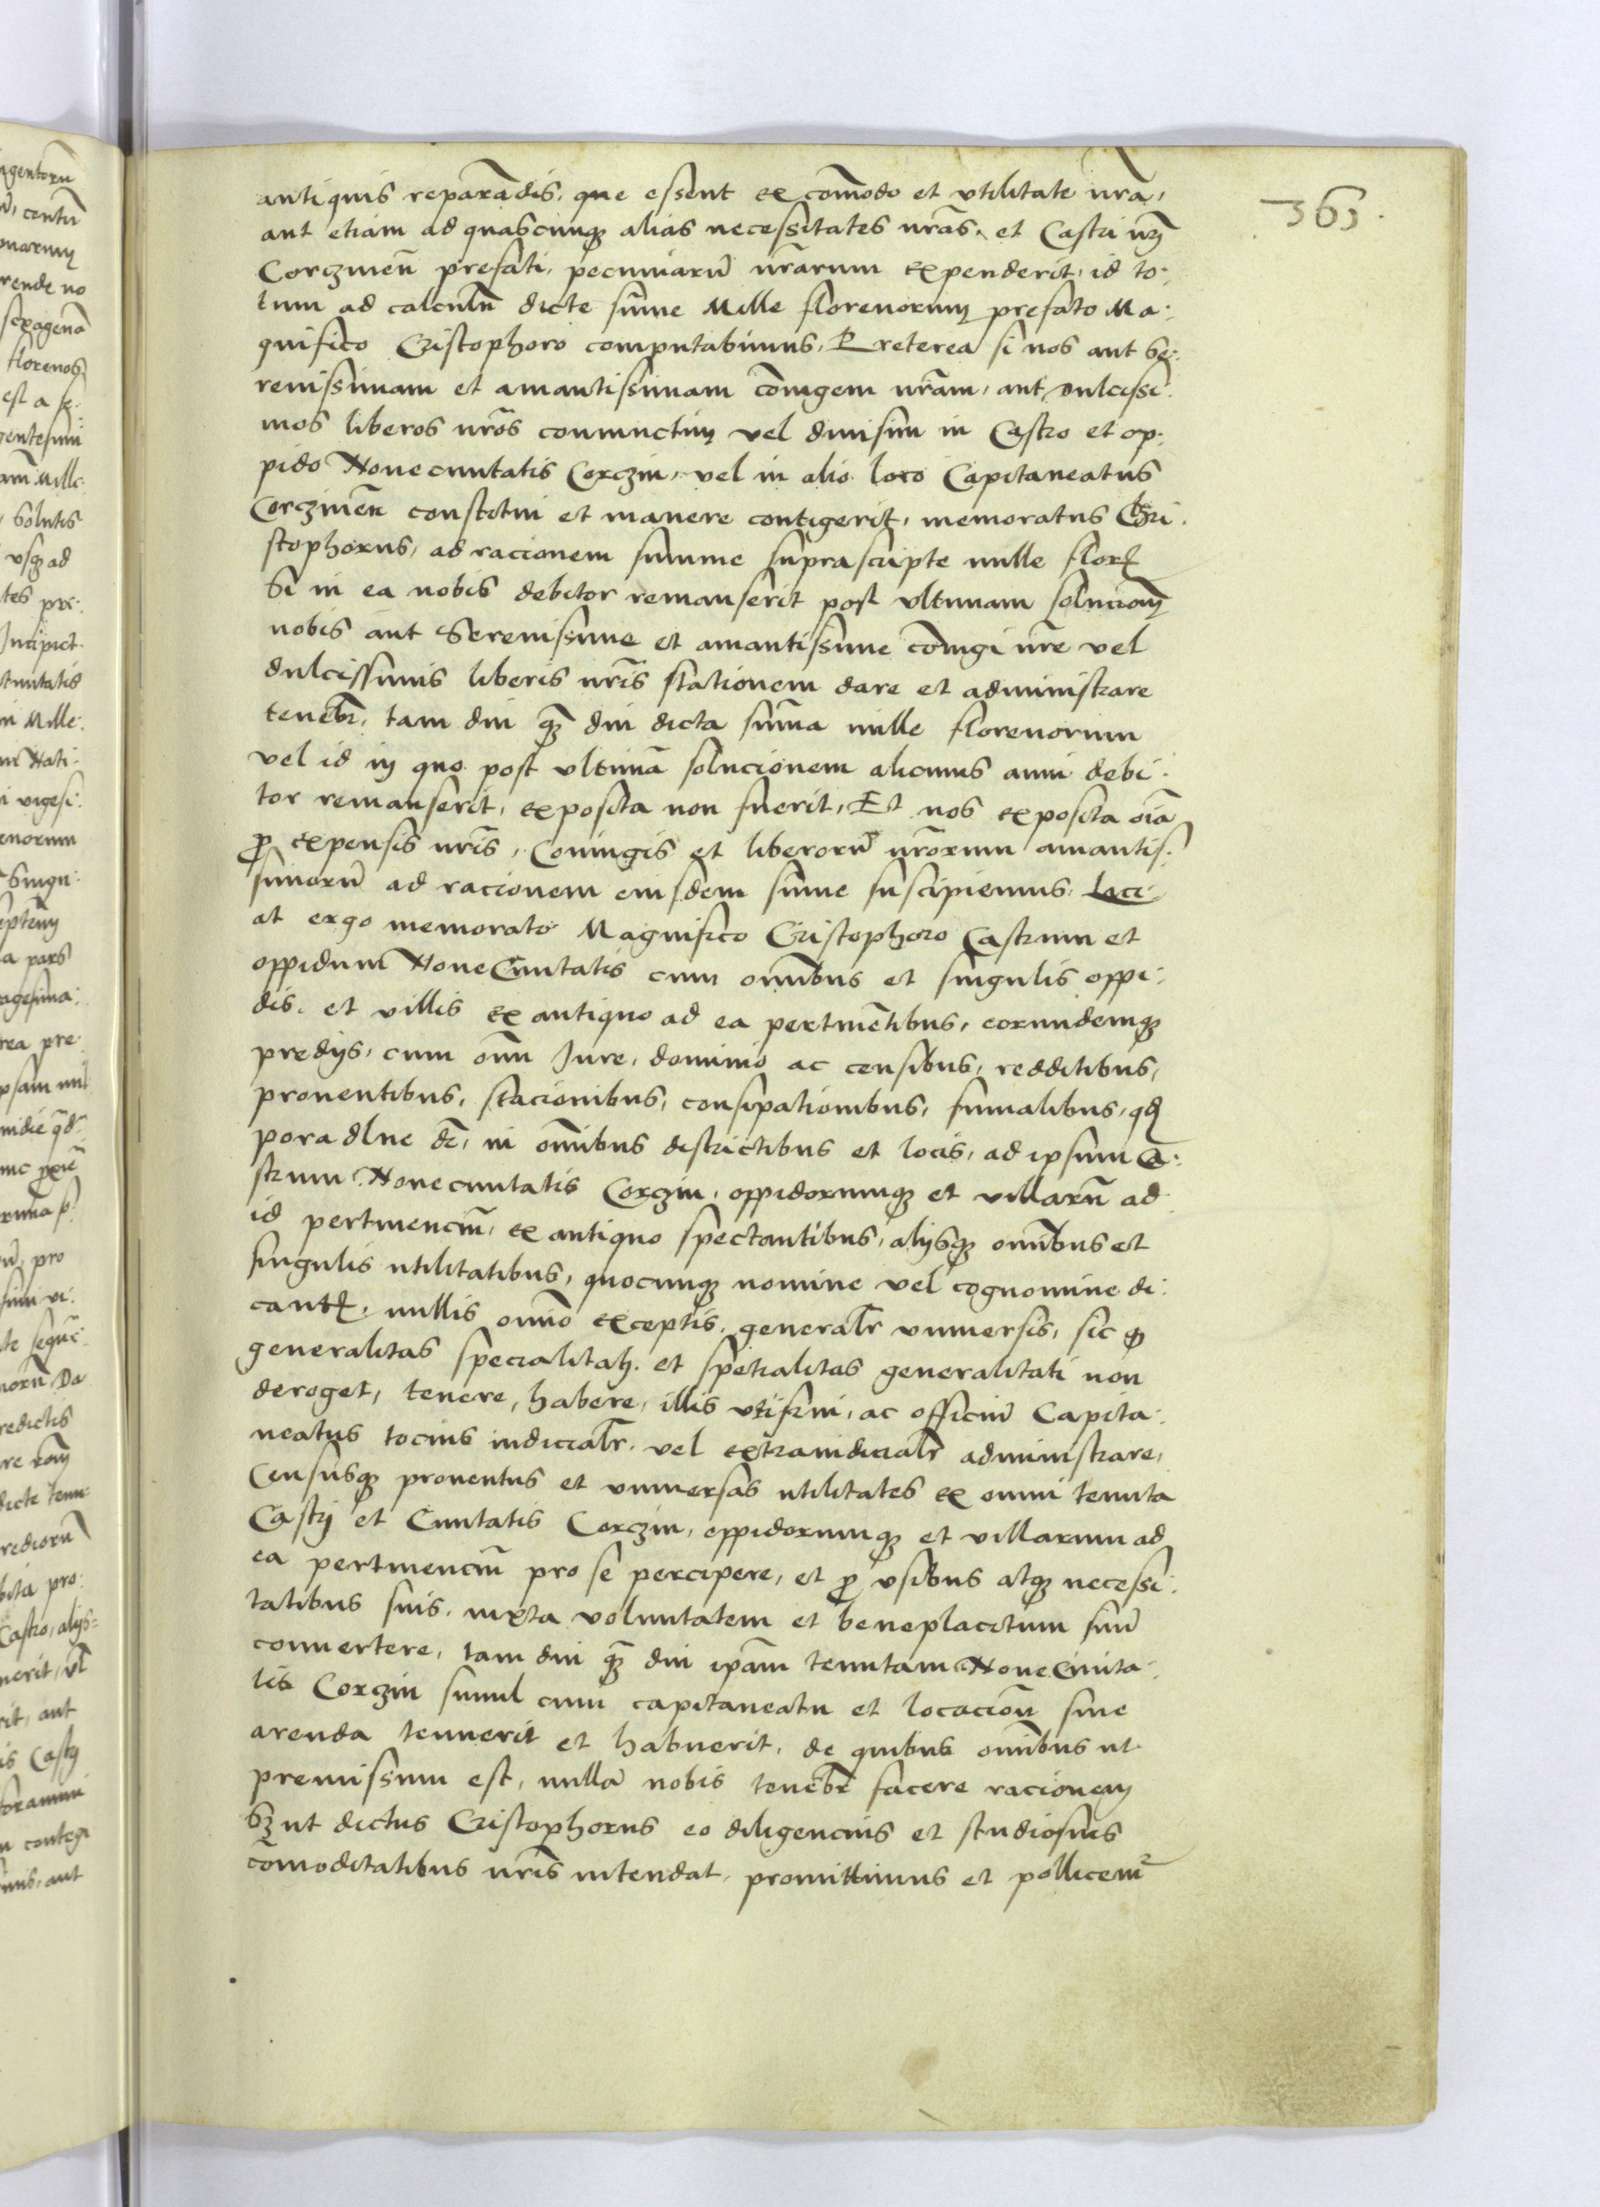 363.
antiquis reparādis, que essent ex cōmodo et vtilitate nrā,
aut etiam ad quascunqꝫ alias necessitates nrās, et Castri nrj
Corczinen̄ prefati, pecuniarū nr̄arum expenderit, id to-
tum ad calculū dicte sūme Mille florenorum prefato Ma-
gnifico Cristophoro computabimus, Preterea si nos aut Se-
renissimam et amantissimam cōiugem nrām, aut dulcissi-
mos liberos nrōs coniunctim vel diuisim in Castro et op-
pido Nouecivitatis Corczin, vel in alio loco Capitaneatus
Corczinen̄ constitui et manere contigerit, memoratus Chri-
stophorus, ad racionem summe suprascripte mille flor
Si in ea nobis debitor remanserit post vltimam solucionem
nobis aut Serenissime et amantissime cōiugi nrē vel
dulcissimis liberis nrīs stationem dare et administrare
tenebr̄, tam diu qꝫ diu dicta sūma mille florenorum
vel id in quo post vltimā solucionem alicuius anni debi-
tor remanserit, exposita non fuerit, Et nos exposita oīa
ꝓ expensis nrīs, Coniugis et liberorū nr̄orum amantis-
simorū ad racionem eiusdem sūme suscipiemus, Lici-
at ergo memorato Magnifico Cristophoro Castrum et
oppidum NoueCiuitatis cum omībus et singulis oppi-
dis, et villis ex antiquo ad ea pertinētibus, eorundemqꝫ
predijs, cum omī Jure, dominio ac censibus, redditibus,
prouentibus, stacionibus, consipationibus, fumalibus, qd
poradlne dr̄, in omībus districtibus et locis, ad ipsum Ca-
strum Nouecivitatis Corczin, oppidorumqꝫ et villarū ad
id pertinenciū, ex antiquo spectantibus, alijsqꝫ omībus et
singulis vtilitatibus, quocunqꝫ nomine vel cognomine di-
cantr, nullis omīo exceptis, generalr̄ vniuersis, sic ꝙ
generalitas specialitati, et spetialitas generalitati non
deroget, tenere, habere, illis vtifrui, ac officiū Capita-
neatus tocius iudicialr̄, vel extraiudicialr̄ administrare,
Censusqꝫ prouentus et vniuersas vtilitates ex omni tenuta
Castrj et Ciuitatis Corczin, oppidorumqꝫ et villarum ad
ea pertinenciū pro se percipere, et ꝓ vsibus atqꝫ necessi-
tatibus suis, iuxta voluntatem et beneplacitum suū
conuertere, tam diu qꝫ diu ipām tenutam NoueCiuita-
tis Corczin simul cum capitaneatu et locacioni siue
arenda tenuerit et habuerit, de quibus omībus vt
premissum est, nullā nobis tenebr̄ facere racionem
Sꝫ vt dictus Cristophorus eo diligencius et studiosius
cōmoditatibus nrīs intendat, promittimus et pollicemr